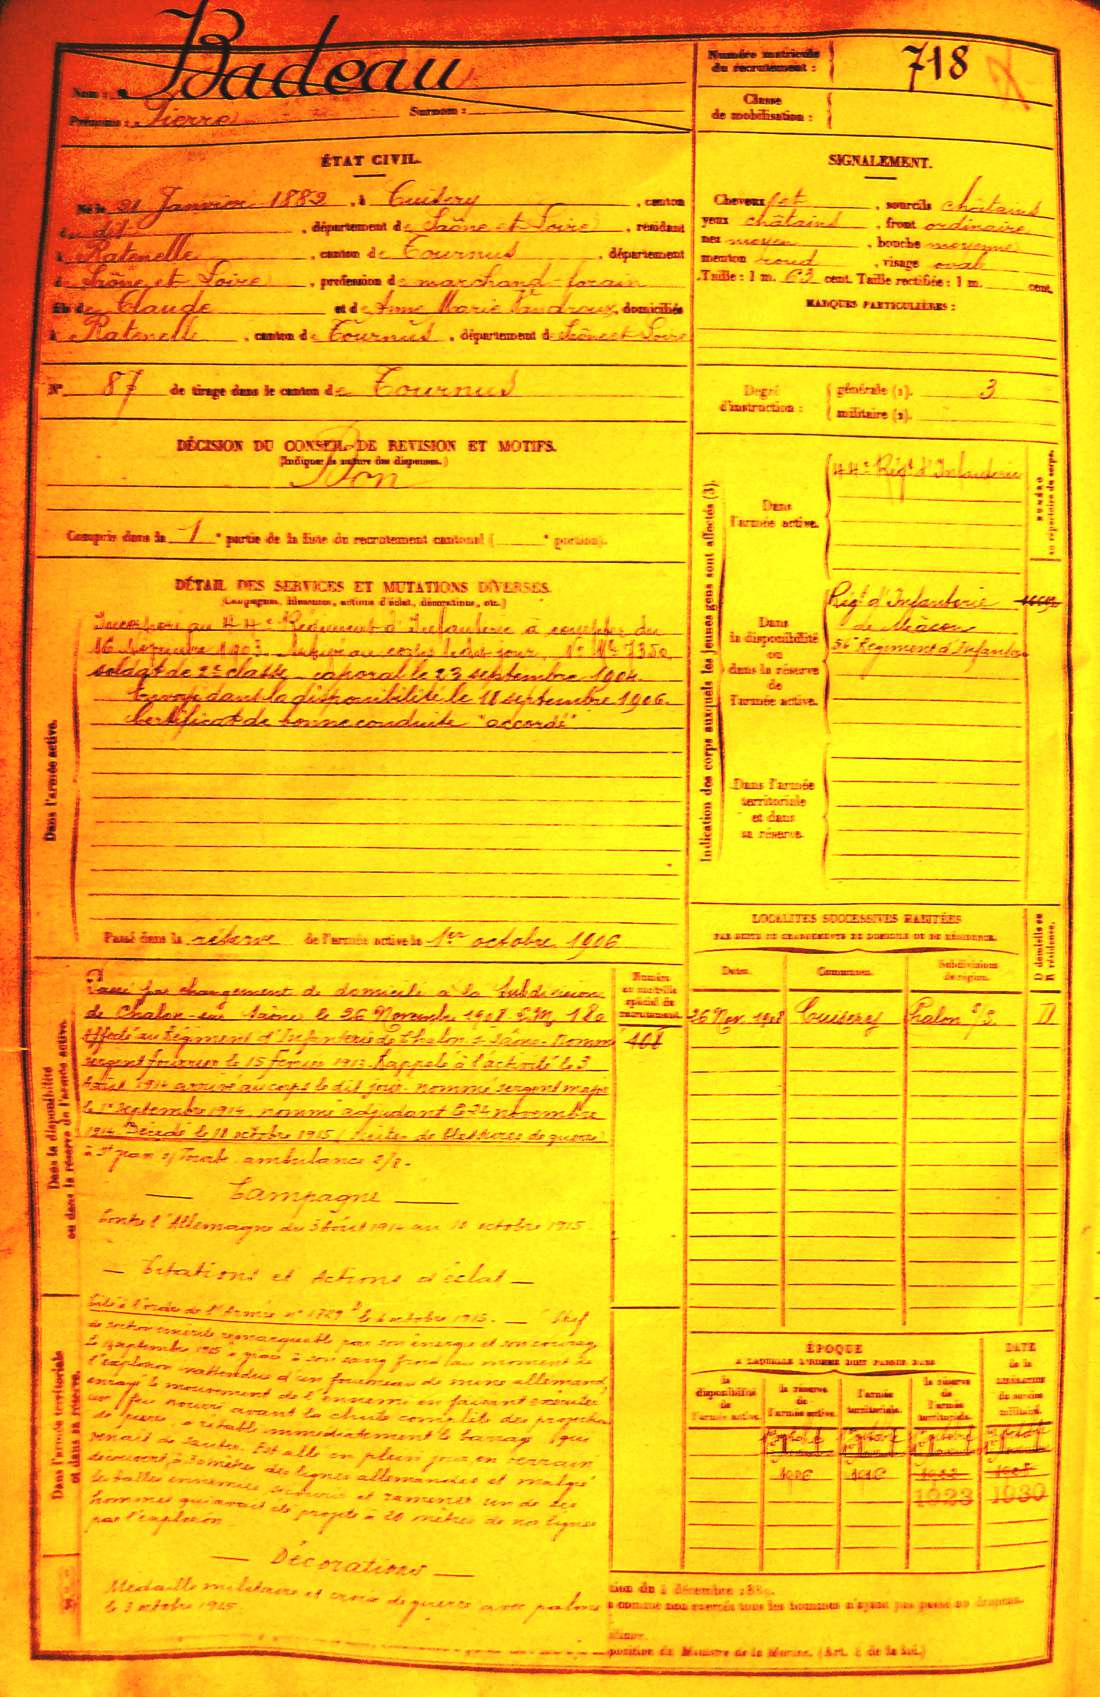 Nom : Badeau
Prénoms : Pierre Surnom :
Numéro matricule du recrutement : 718
Classe de mobilisation :
ÉTAT CIVIL.
Né le 21 Janvier 1882, à Cuisery, canton
du dit, département de Saône et Loire, résidant
à Ratenelle, canton de Tournus, département
de Saône et Loire, profession de marchand-forain
fils de Claude et de Anne Marie, domiciliés
à Ratenelle, canton de Tournus, département de Saône et Loire
N° 87 de tirage dans le canton de Tournus
SIGNALEMENT.
Cheveux et, sourcils châtains
yeux châtains, front ordinaire
nez moyen, bouche moyenne
menton rond, visage oval
Taille : 1 m. 63 cent. Taille rectifiée : 1 m. cent.
MARQUES PARTICULIÈRES :
Degré d'instruction : générale (1). 3
militaire (2).
DÉCISION DU CONSEIL DE REVISION ET MOTIFS.
(Indiquer la nature des dispenses.)
Bon
Compris dans la 1e partie de la liste du recrutement cantonal ( e portion).
DÉTAIL DES SERVICES ET MUTATIONS DIVERSES.
(Campagnes, blessures, actions d'éclat, décorations, etc.)
Dans l'armée active.
Incorporé au 44e Régiment d'Infanterie à compter du
16 Novembre 1903. Arrivé au corps le dit jour, n° Mle 7350
soldat de 2e classe. caporal le 23 septembre 1904.
Envoyé dans la disponibilité le 18 septembre 1906.
Certificat de bonne conduite "accordé"
Passé dans la réserve de l'armée active le 1er octobre 1906
Indication des corps auxquels les jeunes gens sont affectés (3).
NUMÉRO au répertoire du corps.
Dans l'armée active.
44e Régt d'Infanterie
Dans la disponibilité ou dans la réserve de l'armée active.
Régt d'Infanterie
de Mâcon
56e Régiment d'Infanterie
Dans l'armée territoriale et dans sa réserve.
LOCALITÉS SUCCESSIVES HABITÉES
PAR SUITE DE CHANGEMENTS DE DOMICILE OU DE RÉSIDENCE.
Dates. Communes. Subdivisions de région. D domicile ou R résidence.
26 Nov. 1908 Cuisery Chalon s/S. D
Dans la disponibilité ou dans la réserve de l'armée active.
Numéro au matricule spécial du recrutement.
Passé par changement de domicile à la Subdivision
de Chalon-sur Saône le 26 Novembre 1908
Affecté au Régiment d'Infanterie de Chalon s. Saône. Nommé
sergent fourrier le 15 février 1912. Rappelé à l'activité le 3
Août 1914 arrivé au corps le dit jour. nommé sergent major
le 1er septembre 1914. nommé adjudant le 24 novembre
1914. Décédé le 18 octobre 1915 (suites de blessures de guerre)
à St Jean s/ Tourbe ambulance 2/8.
Campagne
Contre l'Allemagne du 3 Août 1914 au 18 octobre 1915
Citations et Actions d'éclat
Cité à l'ordre de l'Armée n° 1729 le 6 octobre 1915. Chef
de section émérite remarquable par son énergie et son courage
Le septembre 1915 a grâce à son sang froid au moment de
l'explosion inattendue d'un fourneau de mine allemand,
enrayé le mouvement de l'ennemi en faisant exécuter
un feu nourri avant la chute complète des projections
de pierre a rétabli immédiatement le barrage qui
venait de sauter. Est allé en plein jour en terrain
découvert, à 30 mètres des lignes allemandes et malgré
les balles ennemies, secourir et ramener un de ses
hommes qui avait été projeté à 20 mètres de nos lignes
par l'explosion
Décorations
Médaille militaire et croix de guerre avec palme
le 3 octobre 1915.
Dans l'armée territoriale et dans sa réserve.
ÉPOQUE
A LAQUELLE L'HOMME DOIT PASSER DANS
la disponibilité de l'armée active.
la réserve de l'armée active.
l'armée territoriale.
la réserve de l'armée territoriale.
DATE de la LIBÉRATION du service militaire.
1906 1916
1923 1930
position du Ministre de la Marine. (Art. de la loi.)